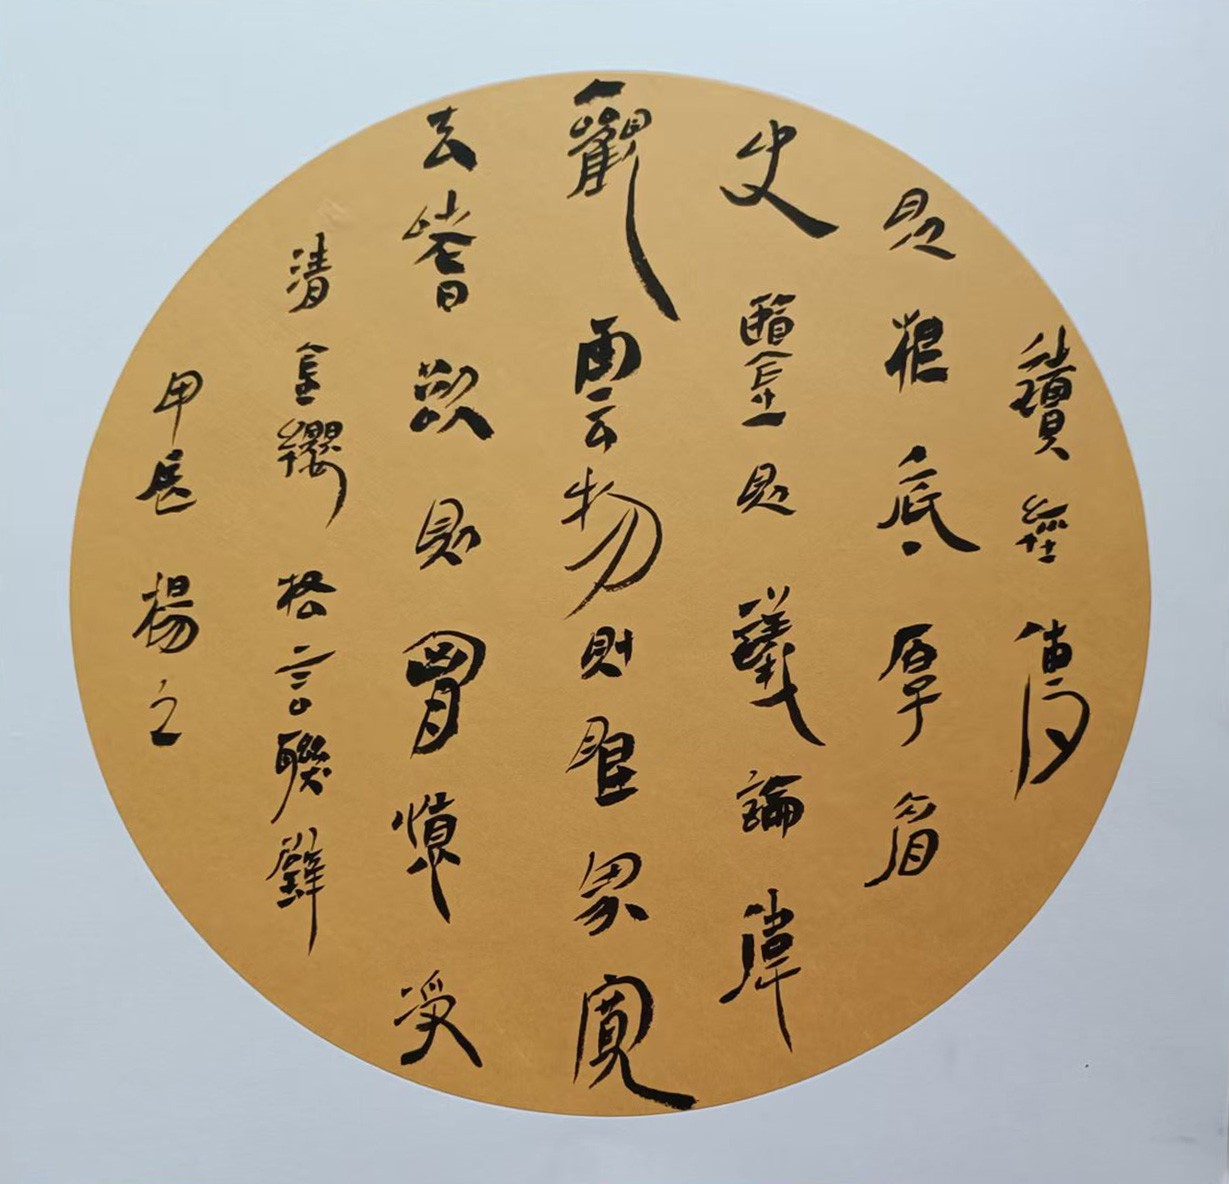 讀經傳
則根底厚看
史鑒則議論偉
觀雲物則眼界寬
去嗜欲則胸懷淨
清金纓格言聯璧
甲辰楊之